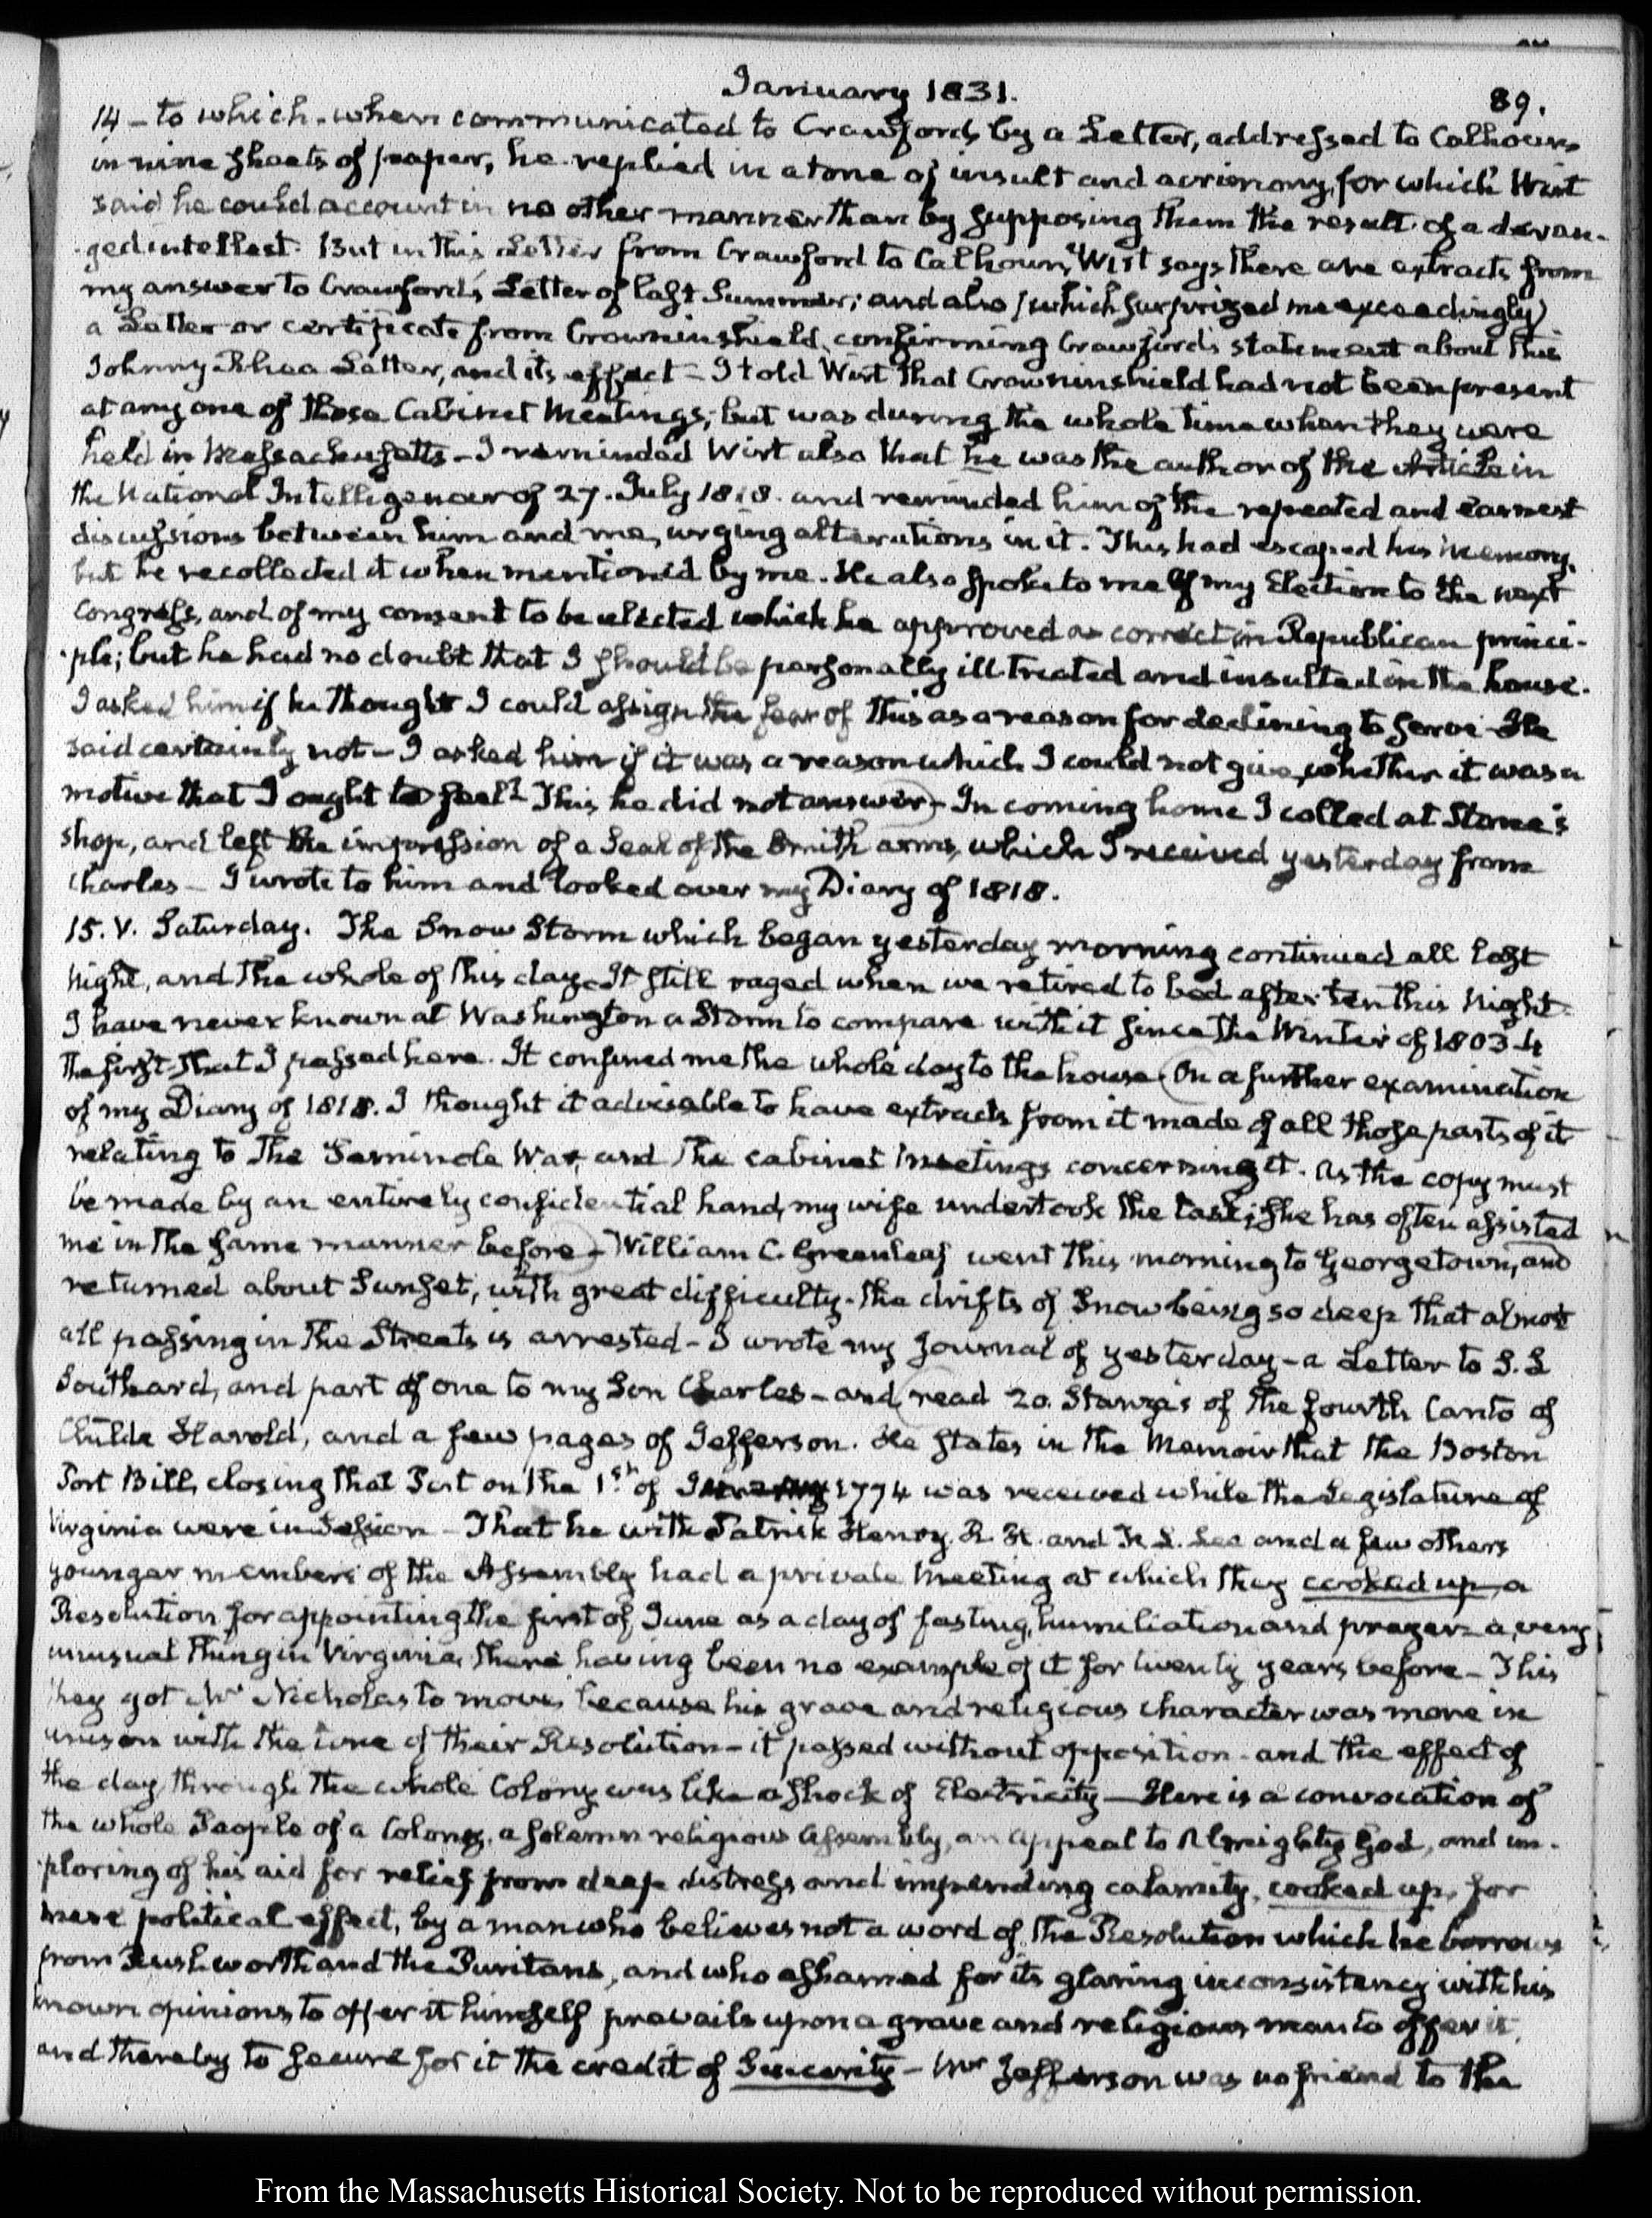 January 1831.
89.
14 - to which when communicated to Crawford, by a Letter, addressed to Calhoun,
in nine sheets of paper, he replied in a tone of insult and acrimony, for which Wirt
said he could account in no other manner than by supposing them the result of a deran-
ged intellect. But in this Letter from Crawford to Calhoun, Wirt says there are extracts from
my answer to Crawford's Letter of last Summer; and also (which surprized me exceedingly)
a Letter or certificate from Crowninshield, confirming Crawford's statement about this
Johnny Rhea Letter, and its effect - I told Wirt that Crowninshield had not been present
at any one of those Cabinet Meetings; but was during the whole time when they were
held in Massachusetts - I reminded Wirt also that he was the author of the Article in
the National Intelligencer of 27. July 1818. and reminded him of the repeated and earnest
discussions between him and me, urging alterations in it. This had escaped his memory,
but he recollected it when mentioned by me. He also spoke to me of my Election to the next
Congress, and of my consent to be elected which he approved as correct in Republican princi-
ple; but he had no doubt that I should be personally ill treated and insulted in the house.
I asked him if he thought I could assign the fear of this as a reason for declining to serve - He
said certainly not - I asked him if it was a reason which I could not give, whether it was a
motive that I ought to feel? This he did not answer - In coming home I called at Stone's
shop, and left the impression of a Seal of the Smith arms, which I received yesterday from
Charles - I wrote to him and looked over my Diary of 1818.
15. V. Saturday. The Snow Storm which began yesterday morning continued all last
Night, and the whole of this day - It still raged when we retired to bed after ten this Night -
I have never known at Washington a Storm to compare with it since the Winter of 1803-4
the first that I passed here. It confined me the whole day to the house (On a further examination
of my Diary of 1818. I thought it advisable to have extracts from it made of all those parts of it
relating to The Seminole War, and the cabinet Meetings concerning it. As the copy must
be made by an entirely confidential hand, my wife undertook the task; She has often assisted
me in the same manner before) - William C. Greenleaf went this morning to Georgetown, and
returned about Sunset, with great difficulty - the drifts of Snow being so deep that almost
all passing in the Streets is arrested - I wrote my Journal of yesterday - a Letter to S. L
Southard, and part of one to my Son Charles - and read 20. Stanza's of the fourth Canto of
Childe Harold, and a few pages of Jefferson. He states in the Memoir that the Boston
Port Bill, closing that Port on the 1st of 1774 was received while the Legislature of
Virginia were in Session - That he with Patrick Henry, R. H. and F. L. Lee and a few others
younger members of the Assembly had a private Meeting at which they cooked up, a
Resolution for appointing the first of June as a day of fasting, humiliation and prayer - a very
unusual thing in Virginia, there having been no example of it for twenty years before - This
they got Mr Nicholas to move, because his grave and religious character was more in
unison with the tone of their Resolution - it passed without opposition - and the effect of
the day, through the whole Colony was like a shock of Electricity - Here is a convocation of
the whole People of a Colony, a solemn religious Assembly, an appeal to Almighty God, and im-
ploring of his aid for relief from deep distress and impending calamity, cooked up, for
mere political effect, by a man who believes not a word of the Resolution which he borrows
from Rushworth and the Puritans, and who ashamed for its glaring inconsistency with his
known opinions to offer it himself prevails upon a grave and religious man to offer it,
and thereby to secure for it the credit of Sincerity - Mr Jefferson was no friend to the
From the Massachusetts Historical Society. Not to be reproduced without permission.